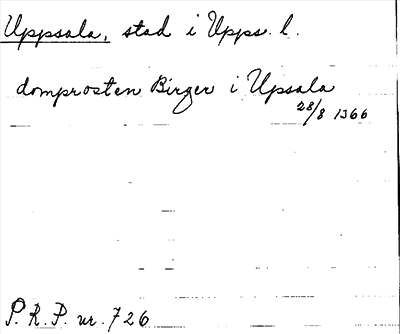 Uppsala, stad i Upps. l.
domprosten Birger i Upsala
28/8 1366
P. R. P. nr. 726